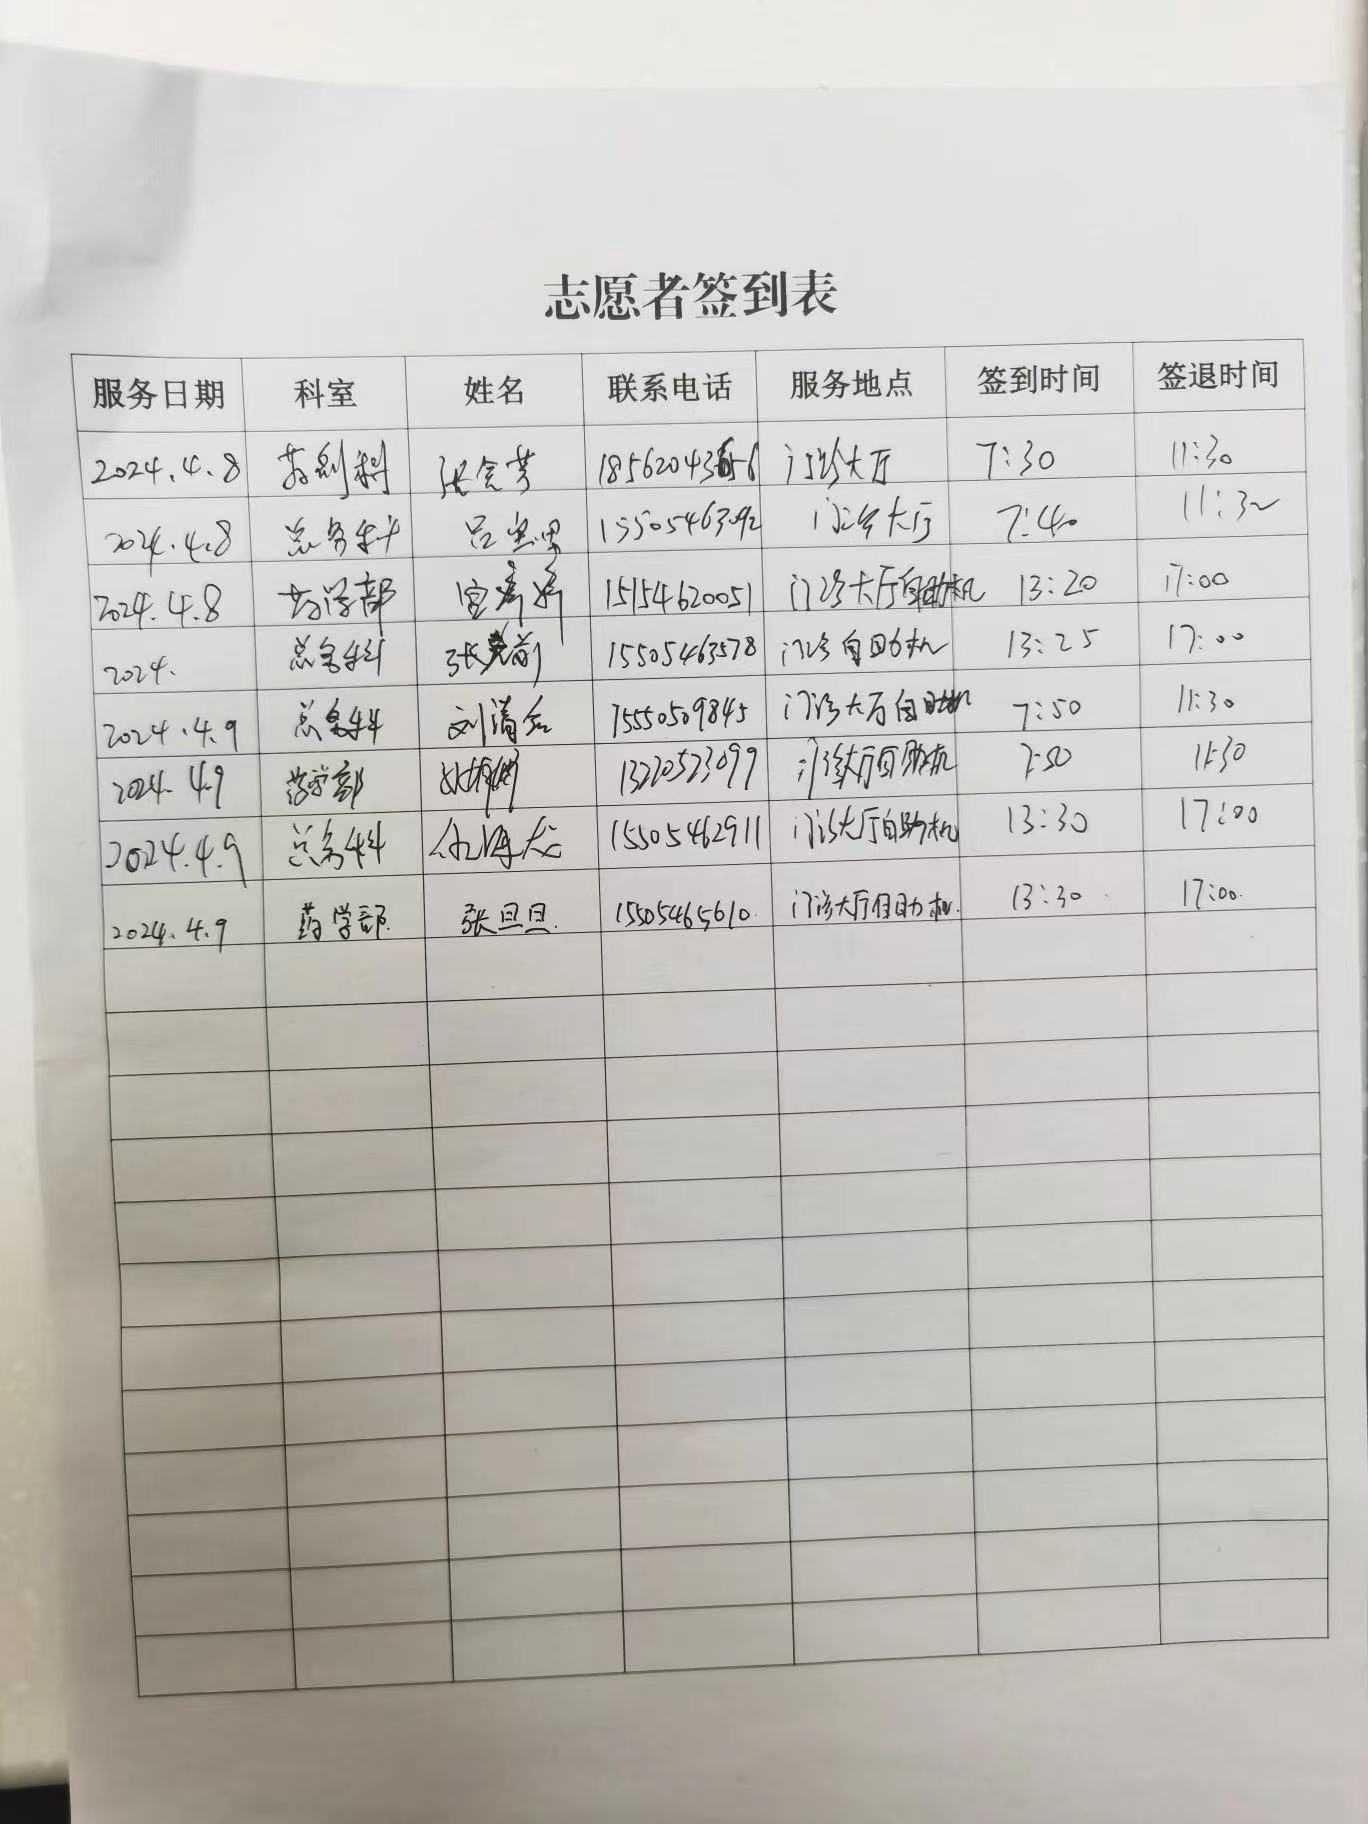 志愿者签到表
服务日期 科室 姓名 联系电话 服务地点 签到时间 签退时间
2024.4.8 药剂科 张会芳 门诊大厅 7:30 11:30
2024.4.8 总务科 门诊大厅 7:40 11:30
2024.4.8 药学部 15154620051 门诊大厅自助机 13:20 17:00
2024. 总务科 15505463578 门诊自助机 13:25 17:00
2024.4.9 总务科 刘清 15550509845 门诊大厅自助机 7:50 11:30
2024.4.9 药学部 13220523099 门诊大厅自助机 7:50 11:30
2024.4.9 总务科 15505462911 门诊大厅自助机 13:30 17:00
2024.4.9 药学部. 张旦旦. 15505465610. 门诊大厅自助机. 13:30. 17:00.